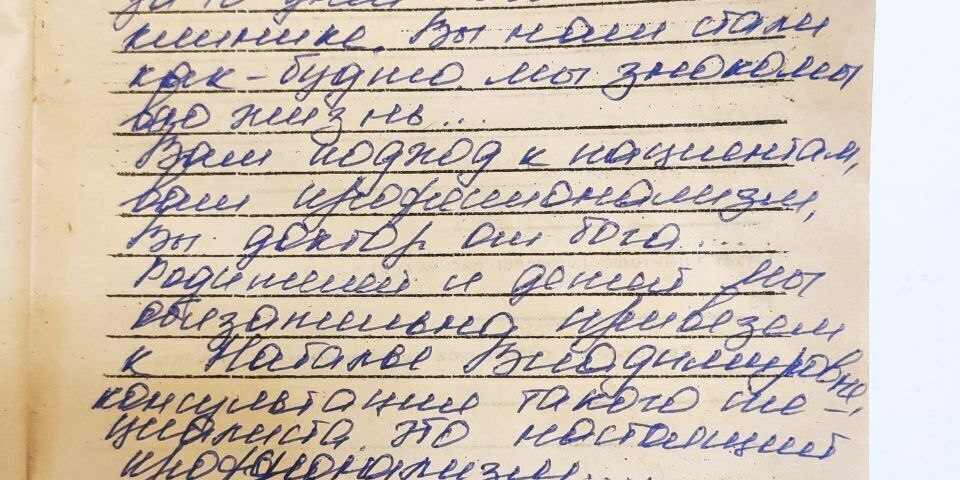 за 10 дней
клинике. Вы нам стали
как-будто мы знакомы
всю жизнь...
Ваш подход к пациентам,
ваш профешионализм,
Вы доктор от бога.....
Родителей и детей мы
обизательно привезем
к Наталье Владимировне,
консультации такого спе-
циалиста это настоящий
профионализм...